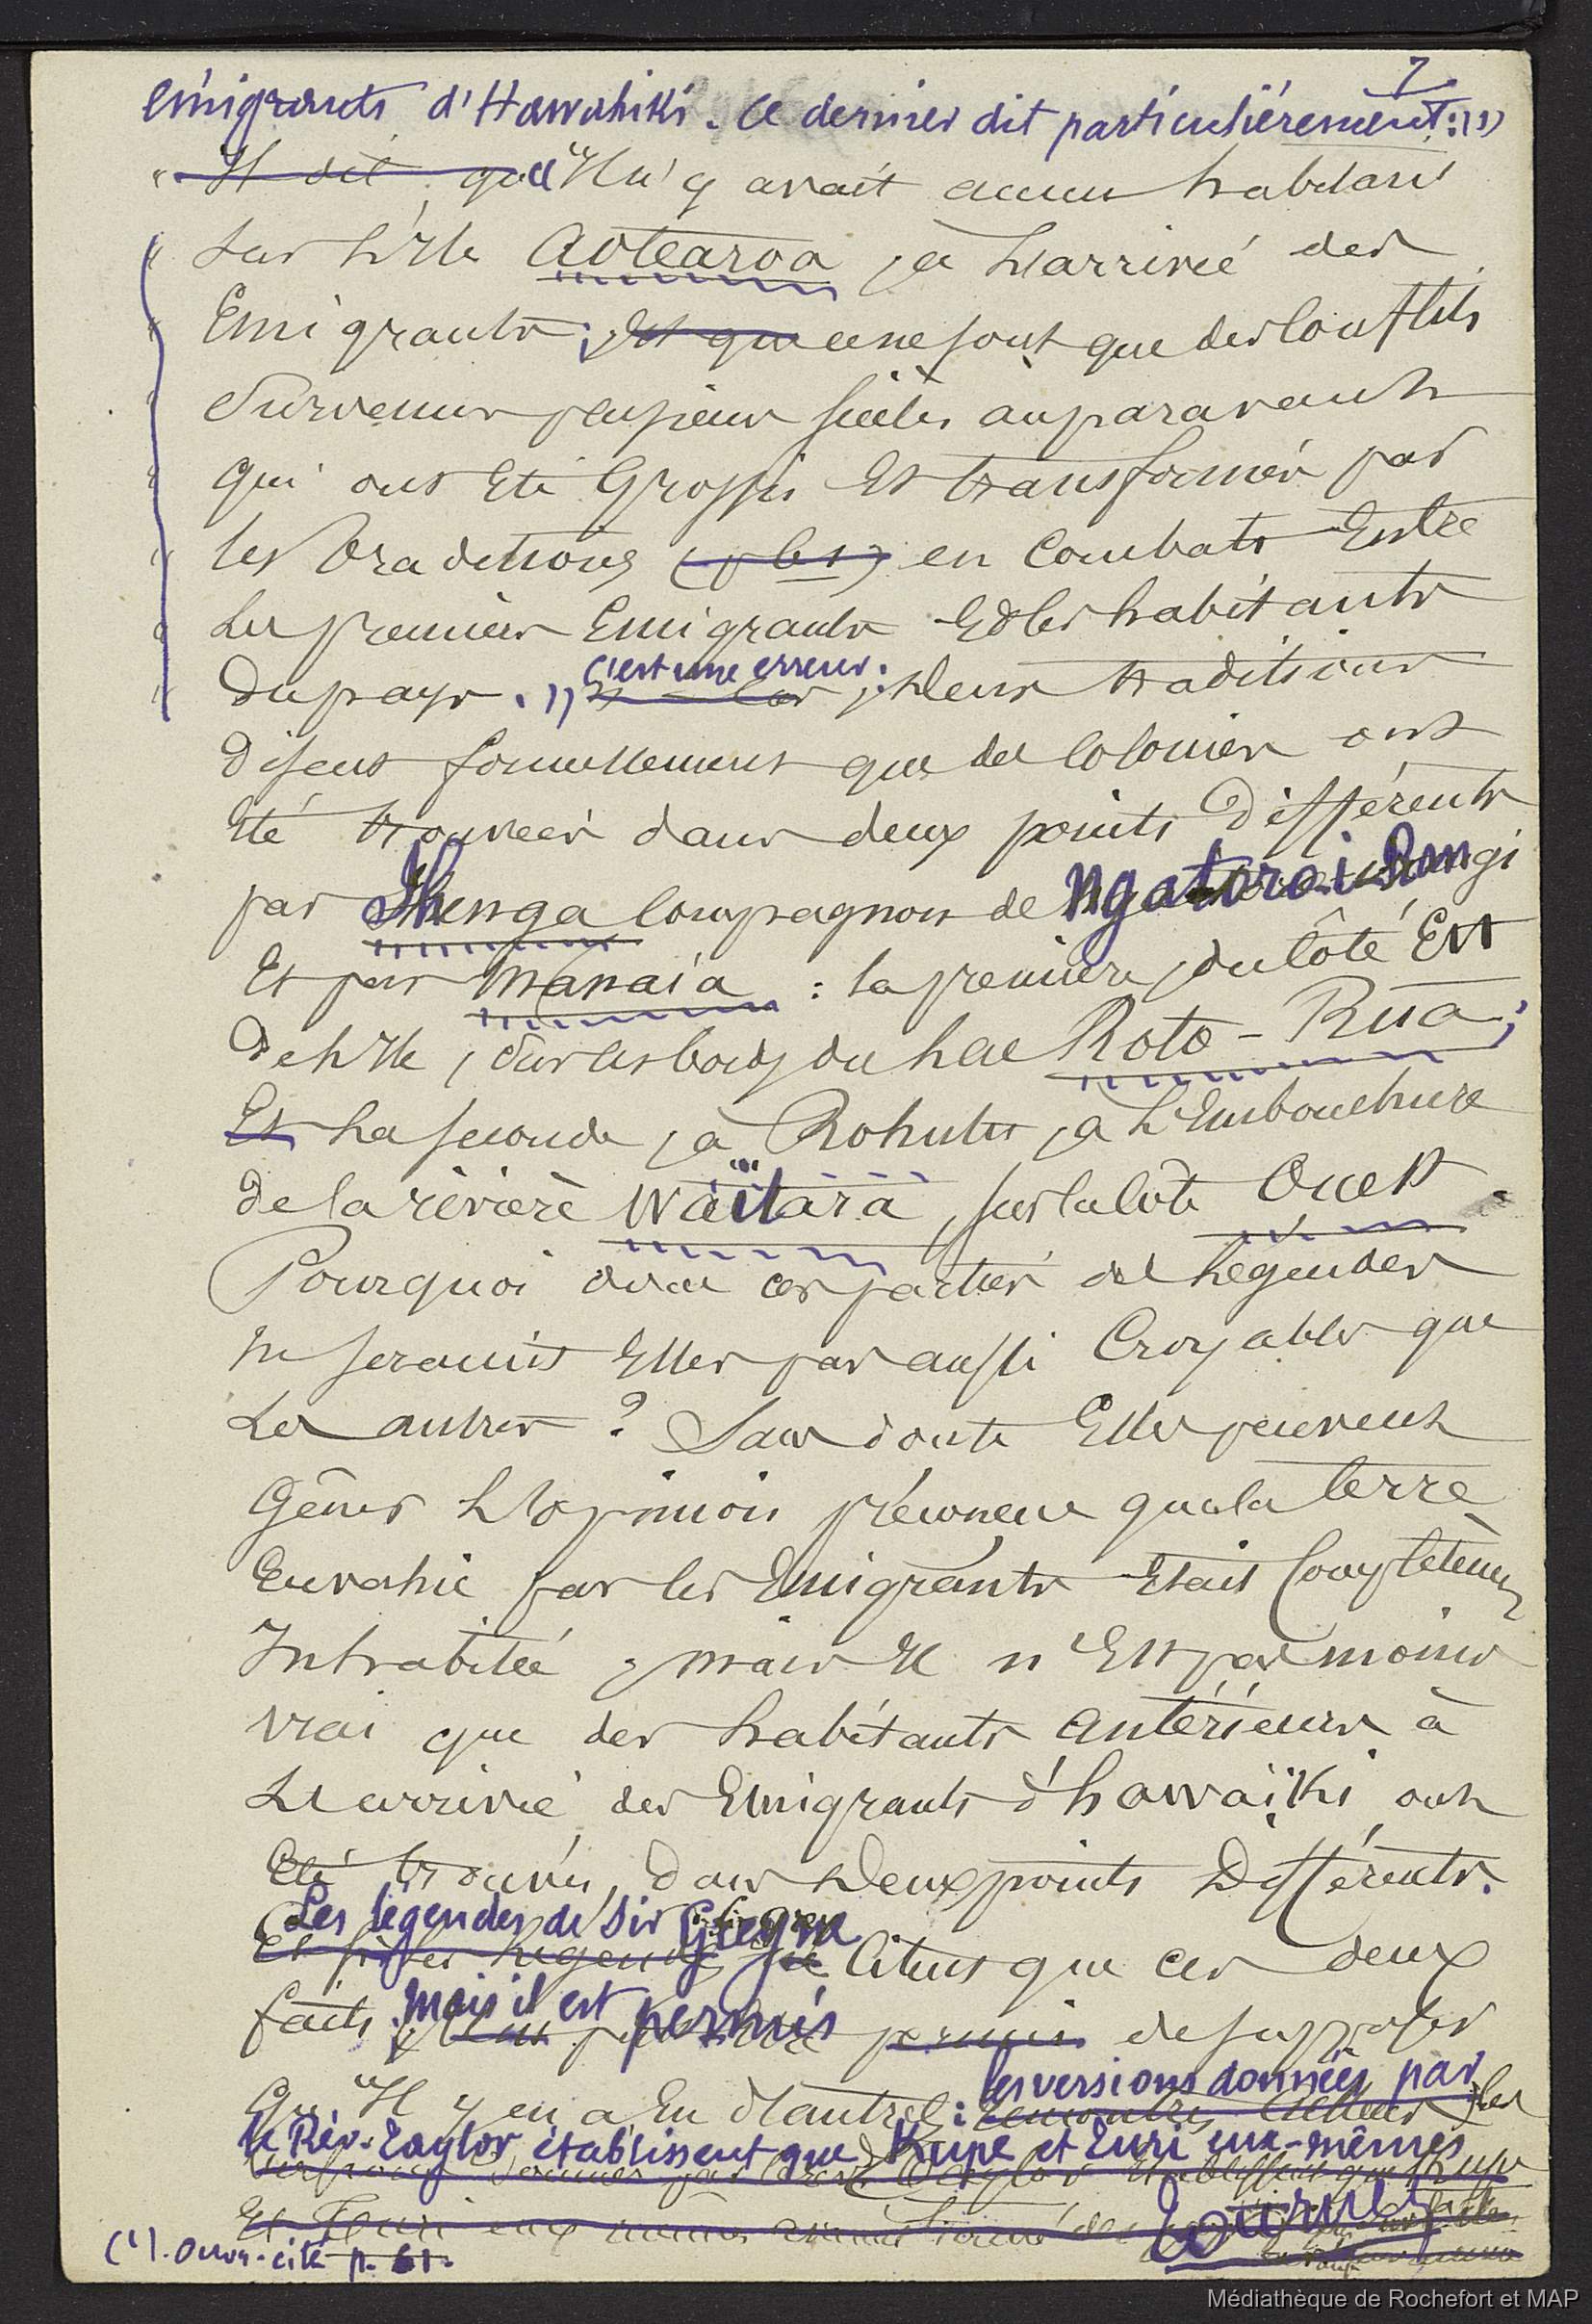 7
émigrants d'Hawahiki. Ce dernier dit particulièrement:(1)
"Il dit que "Il n'y avait aucun habitant
sur l'Ile Aotearoa, à l'arrivée des
Emigrants; et que ce ne sont que des conflits
Survenus plusieurs siècles auparavant
qui ont Eté Grossis Et transformés par
les Traditions (p 61) en Combats Entre
les premiers Emigrants Et les habitants
du pays." c'est une erreur: Deux traditions
Disent formellement que des colonies ont
Eté trouvées dans deux points Différents
par Ihenga compagnon de Ngatoro-i-Rangi
Et par Manaia: la première, du côté Est
De l'Ile, sur les bords du lac Roto-Rua;
Et la seconde, à Rohutu, à l'Embouchure
de la rivière Waïtara, sur la côte Ouest.
Pourquoi donc ces parties de légendes
ne seraient Elles pas aussi Croyables que
les autres? Sans doute Elles peuvent
Gêner l'opinion préconçue que la terre
Envahie par les Emigrants Etait Complètement
Inhabitée, mais Il n'Est pas moins
vrai que des habitants antérieurs à
l'arrivée des Emigrants d'hawaïki ont
Eté trouvés, dans Deux points Différents.
Les légendes de Sir Gregre
Et si les légendes ne citent que ces deux
faits. Mais il est permis permis de supposer
Qu'Il y en a Eu d'autres: les versions données par
le Rév. Taylor établissent que Kupe et Turi eux-mêmes
versions données par le rév. Taylor établissent que Kupe
Et Turi eux mêmes
(1). Ouvr. cité p. 61.